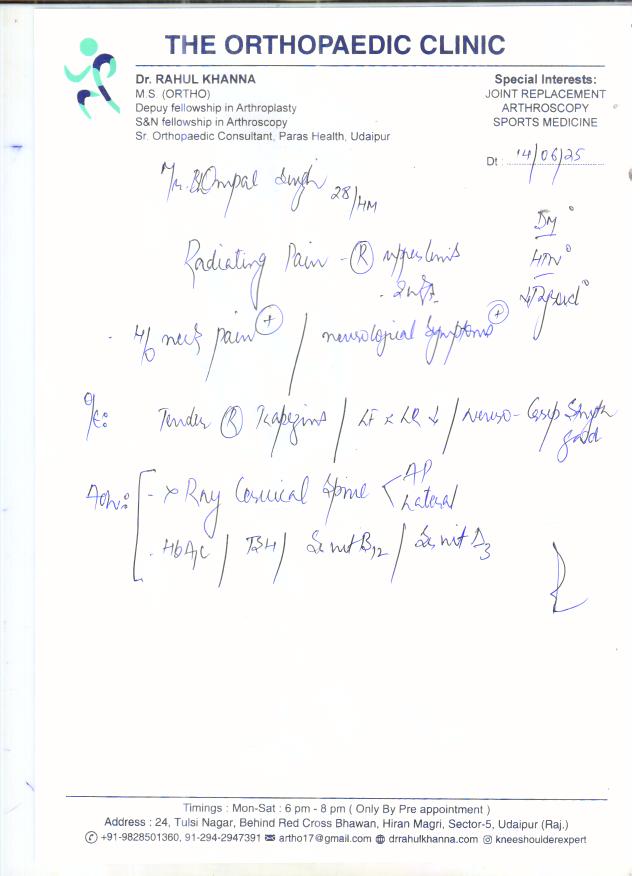 THE ORTHOPAEDIC CLINIC
Dr. RAHUL KHANNA
M.S. (ORTHO)
Depuy fellowship in Arthroplasty
S&N fellowship in Arthroscopy
Sr. Orthopaedic Consultant, Paras Health, Udaipur
Special Interests:
JOINT REPLACEMENT
ARTHROSCOPY
SPORTS MEDICINE
Dt : 14/06/25
Mr. Ompal Singh 28/M
DM °
HTN °
Thyroid °
Radiating Pain - (R) upper limb
H/o neck pain (+) / neurological symptoms (+)
O/E: Tender (R) Trapezius / LF x LR ↓ / Neuro - Grip Strength good
Adv: - X Ray Cervical Spine < AP
Lateral
HbA1C / TSH / Sr. vit B12 / Sr. vit D3
Timings : Mon-Sat : 6 pm - 8 pm ( Only By Pre appointment )
Address : 24, Tulsi Nagar, Behind Red Cross Bhawan, Hiran Magri, Sector-5, Udaipur (Raj.)
+91-9828501360, 91-294-2947391 artho17@gmail.com drrahulkhanna.com kneeshoulderexpert